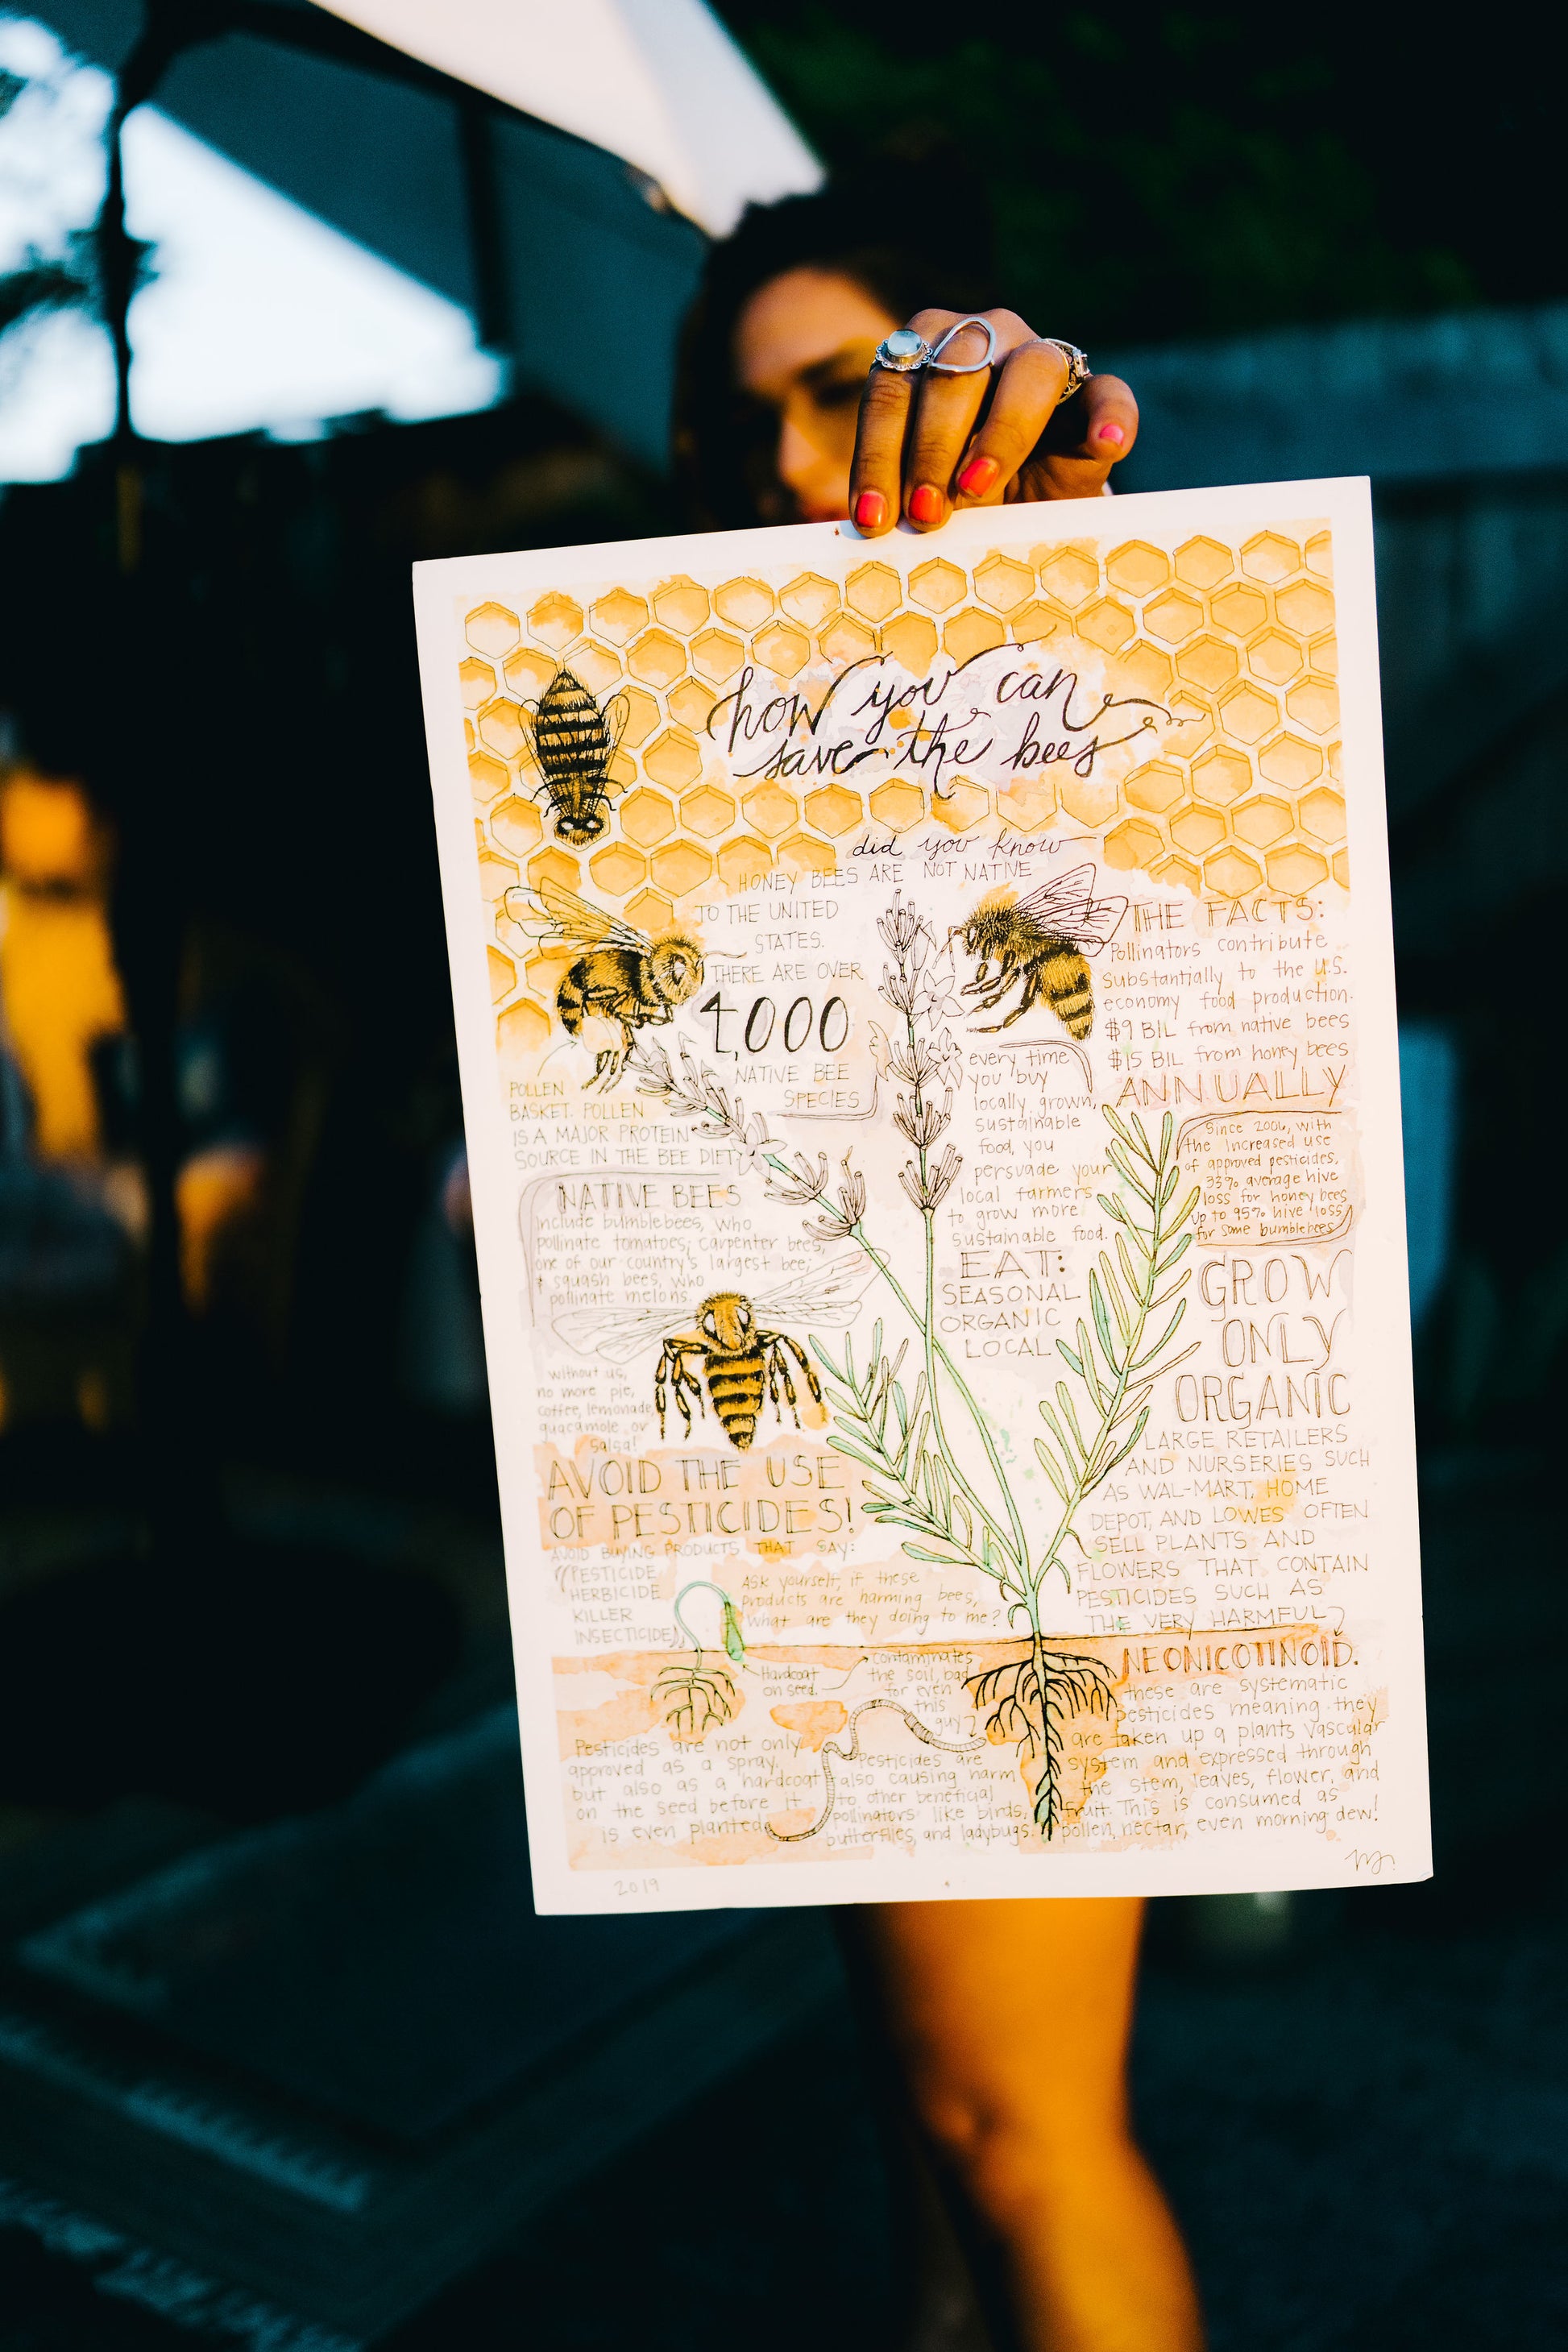 how you can
save the bees
did you know
HONEY BEES ARE NOT NATIVE
TO THE UNITED
STATES.
THERE ARE OVER
4,000
NATIVE BEE
SPECIES
POLLEN
BASKET. POLLEN
IS A MAJOR PROTEIN
SOURCE IN THE BEE DIET
NATIVE BEES
include bumblebees, who
pollinate tomatoes; carpenter bees,
one of our country's largest bee;
& squash bees, who
pollinate melons.
without us,
no more pie,
coffee, lemonade,
guacamole or
salsa!
THE FACTS:
Pollinators contribute
substantially to the U.S.
economy food production.
$9 BIL from native bees
$15 BIL from honey bees
ANNUALLY
every time
you buy
locally grown,
sustainable
food, you
persuade your
local farmers
to grow more
sustainable food.
EAT:
SEASONAL
ORGANIC
LOCAL
Since 2006, with
the increased use
of approved pesticides,
33% average hive
loss for honey bees
up to 95% hive loss
for some bumblebees
GROW
ONLY
ORGANIC
LARGE RETAILERS
AND NURSERIES SUCH
AS WAL-MART, HOME
DEPOT, AND LOWES OFTEN
SELL PLANTS AND
FLOWERS THAT CONTAIN
PESTICIDES SUCH AS
THE VERY HARMFUL
NEONICOTINOID.
these are systematic
pesticides meaning they
are taken up a plants vascular
system and expressed through
the stem, leaves, flower, and
fruit. This is consumed as
pollen, nectar, even morning dew!
AVOID THE USE
OF PESTICIDES!
AVOID BUYING PRODUCTS THAT SAY:
"PESTICIDE
HERBICIDE
KILLER
INSECTICIDE"
Ask yourself, if these
products are harming bees,
what are they doing to me?
Hardcoat
on seed.
contaminates
the soil, bad
for even
this
guy
Pesticides are not only
approved as a spray,
but also as a hardcoat
on the seed before it
is even planted.
Pesticides are
also causing harm
to other beneficial
pollinators like birds,
butterflies, and ladybugs.
2019